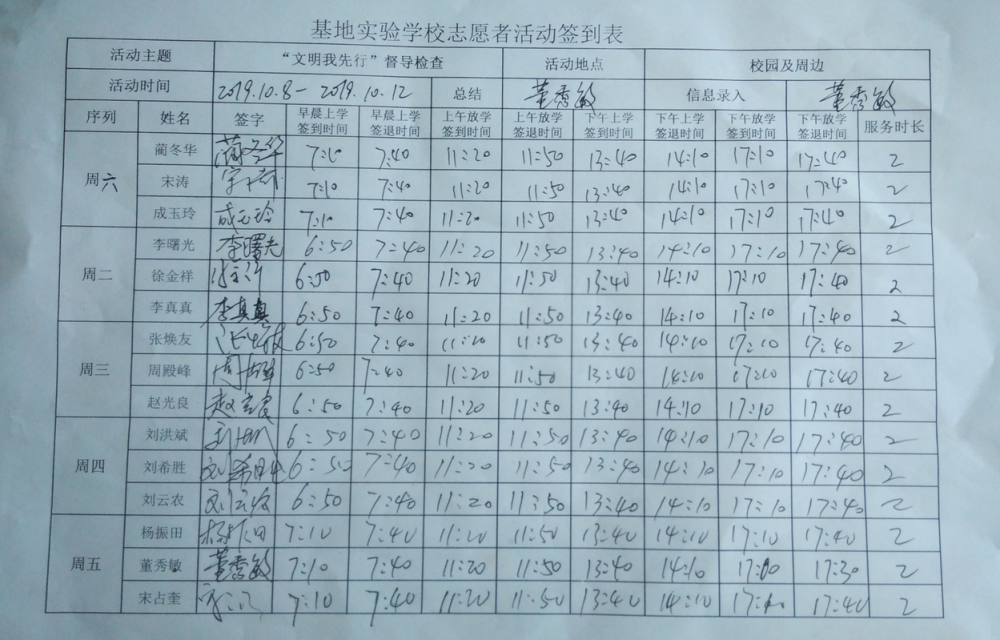 基地实验学校志愿者活动签到表
活动主题 “文明我先行”督导检查 活动地点 校园及周边
活动时间 2019.10.8-2019.10.12 总结 董秀敏 信息录入 董秀敏
序列 姓名 签字 早晨上学签到时间 早晨上学签退时间 上午放学签到时间 上午放学签退时间 下午上学签到时间 下午上学签退时间 下午放学签到时间 下午放学签退时间 服务时长
周六 蔺冬华 蔺冬华 7:10 7:40 11:20 11:50 13:40 14:10 17:10 17:40 2
宋涛 宋涛 7:10 7:40 11:20 11:50 13:40 14:10 17:10 17:40 2
成玉玲 成玉玲 7:10 7:40 11:20 11:50 13:40 14:10 17:10 17:40 2
周二 李曙光 李曙光 6:50 7:40 11:20 11:50 13:40 14:10 17:10 17:40 2
徐金祥 6:50 7:40 11:20 11:50 13:40 14:10 17:10 17:40 2
李真真 李真真 6:50 7:40 11:20 11:50 13:40 14:10 17:10 17:40 2
周三 张焕友 6:50 7:40 11:20 11:50 13:40 14:10 17:10 17:40 2
周殿峰 6:50 7:40 11:20 11:50 13:40 14:10 17:10 17:40 2
赵光良 赵光良 6:50 7:40 11:20 11:50 13:40 14:10 17:10 17:40 2
周四 刘洪斌 6:50 7:40 11:20 11:50 13:40 14:10 17:10 17:40 2
刘希胜 刘希胜 6:50 7:40 11:20 11:50 13:40 14:10 17:10 17:40 2
刘云农 刘云农 6:50 7:40 11:20 11:50 13:40 14:10 17:10 17:40 2
周五 杨振田 杨振田 7:10 7:40 11:20 11:50 13:40 14:10 17:10 17:40 2
董秀敏 董秀敏 7:10 7:40 11:20 11:50 13:40 14:10 17:10 17:30 2
宋占奎 7:10 7:40 11:20 11:50 13:40 14:10 17:10 17:40 2